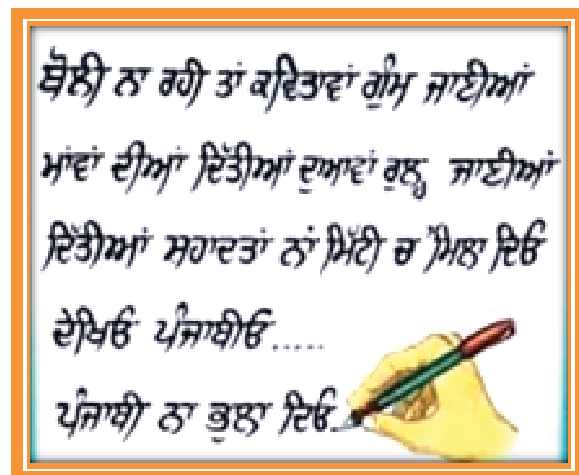 ਬੋਲੀ ਨਾ ਰਹੀ ਤਾਂ ਕਵਿਤਾਵਾਂ ਗੁੰਮ ਜਾਣੀਆਂ
ਮਾਂਵਾਂ ਦੀਆਂ ਦਿੱਤੀਆਂ ਦੁਆਵਾਂ ਰੁਲ੍ਹ ਜਾਣੀਆਂ
ਦਿੱਤੀਆਂ ਸਹਾਦਤਾਂ ਨਾਂ ਮਿੱਟੀ ਚ ਮਿਲਾ ਦਿਓ
ਦੇਖਿਓ ਪੰਜਾਬੀਓ.....
ਪੰਜਾਬੀ ਨਾ ਭੁਲਾ ਦਿਓ..